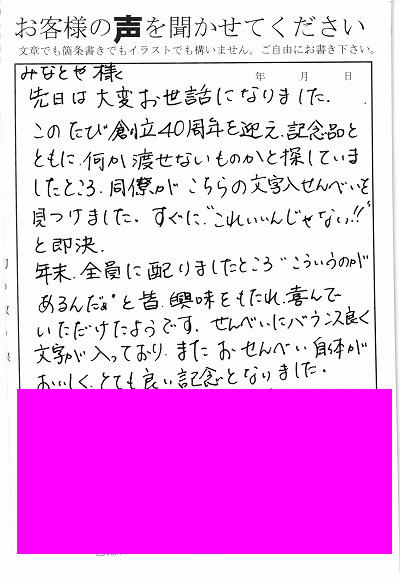 お客様の声を聞かせてください
文章でも箇条書きでもイラストでも構いません。ご自由にお書き下さい。
みなとや様
年 月 日
先日は大変お世話になりました.
このたび創立40周年を迎え、記念品と
ともに、何か渡せないものかと探していま
したところ、同僚が こちらの文字入せんべいを
見つけました。すぐに、"これいいんじゃない!!"
と即決.
年末、全員に配りましたところ"こういうのが
あるんだぁ"と皆、興味をもたれ、喜んで
いただけたようです、せんべいにバランス良く
文字が入っており、また おせんべい自体が
おいしく、とても良い記念となりました。